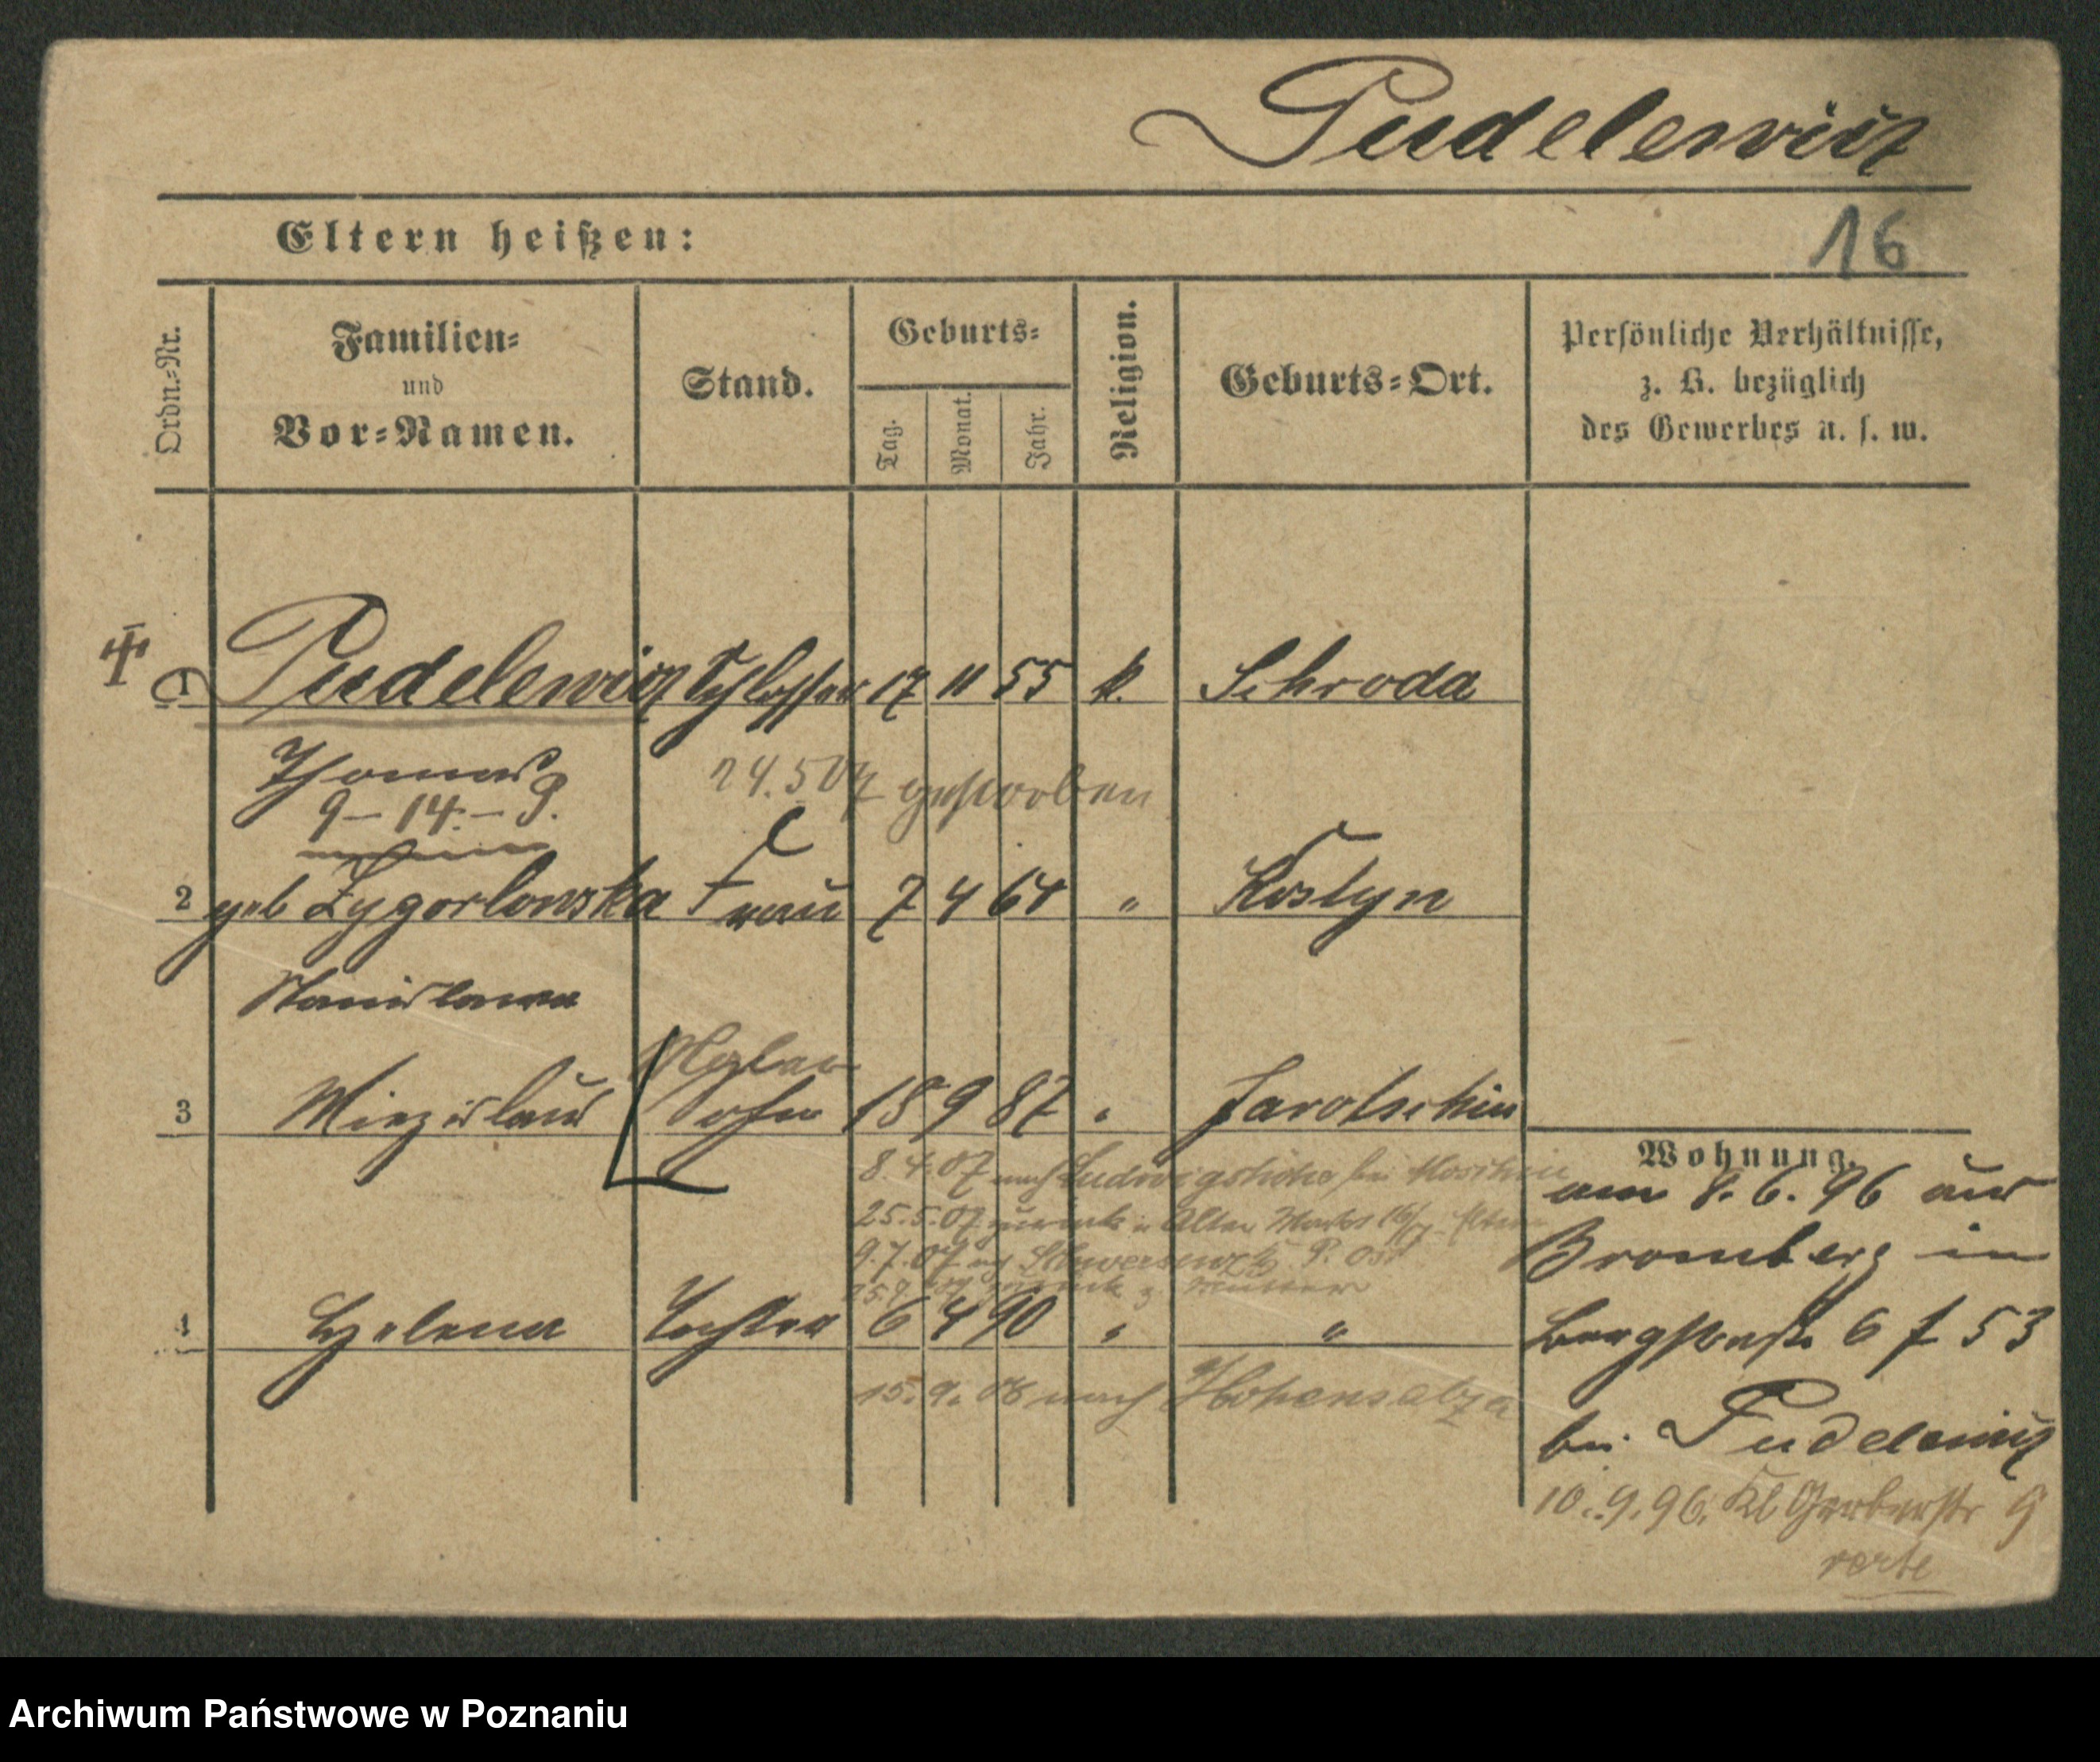 Pudelewicz
Eltern heißen:
16
Ordn.-Nr.
Familien-
und
Vor-Namen.
Stand.
Geburts-
Tag.
Monat.
Jahr.
Religion.
Geburts-Ort.
Persönliche Verhältnisse,
z. B. bezüglich
des Gewerbes u. s. w.
1 Pudelewicz Schlosser 17 11 55 k. Schroda
Thomas
24.5 07 gestorben
9 - 14. - 9.
2 geb Zygorlowska Frau 7 4 64 " Kostyn
Stanislawa
3 Miezislaus Sohn 18 9 87 " Jarotschin
8.4.07 nach Ludwigshöhe bei Moschin
25.5.07 zurück Alter Markt
9.7.07 Schwersenz P. Ost
zurück z
4 Helena Tochter 6 4 90 " "
15.9.08 nach Hohensalza
Wohnung.
am 8. 6. 96 aus
Bromberg in
Bergstraße 6 f 53
bei Pudelewicz
10.9.96. Kl Gerberstr 9
verte
Archiwum Państwowe w Poznaniu